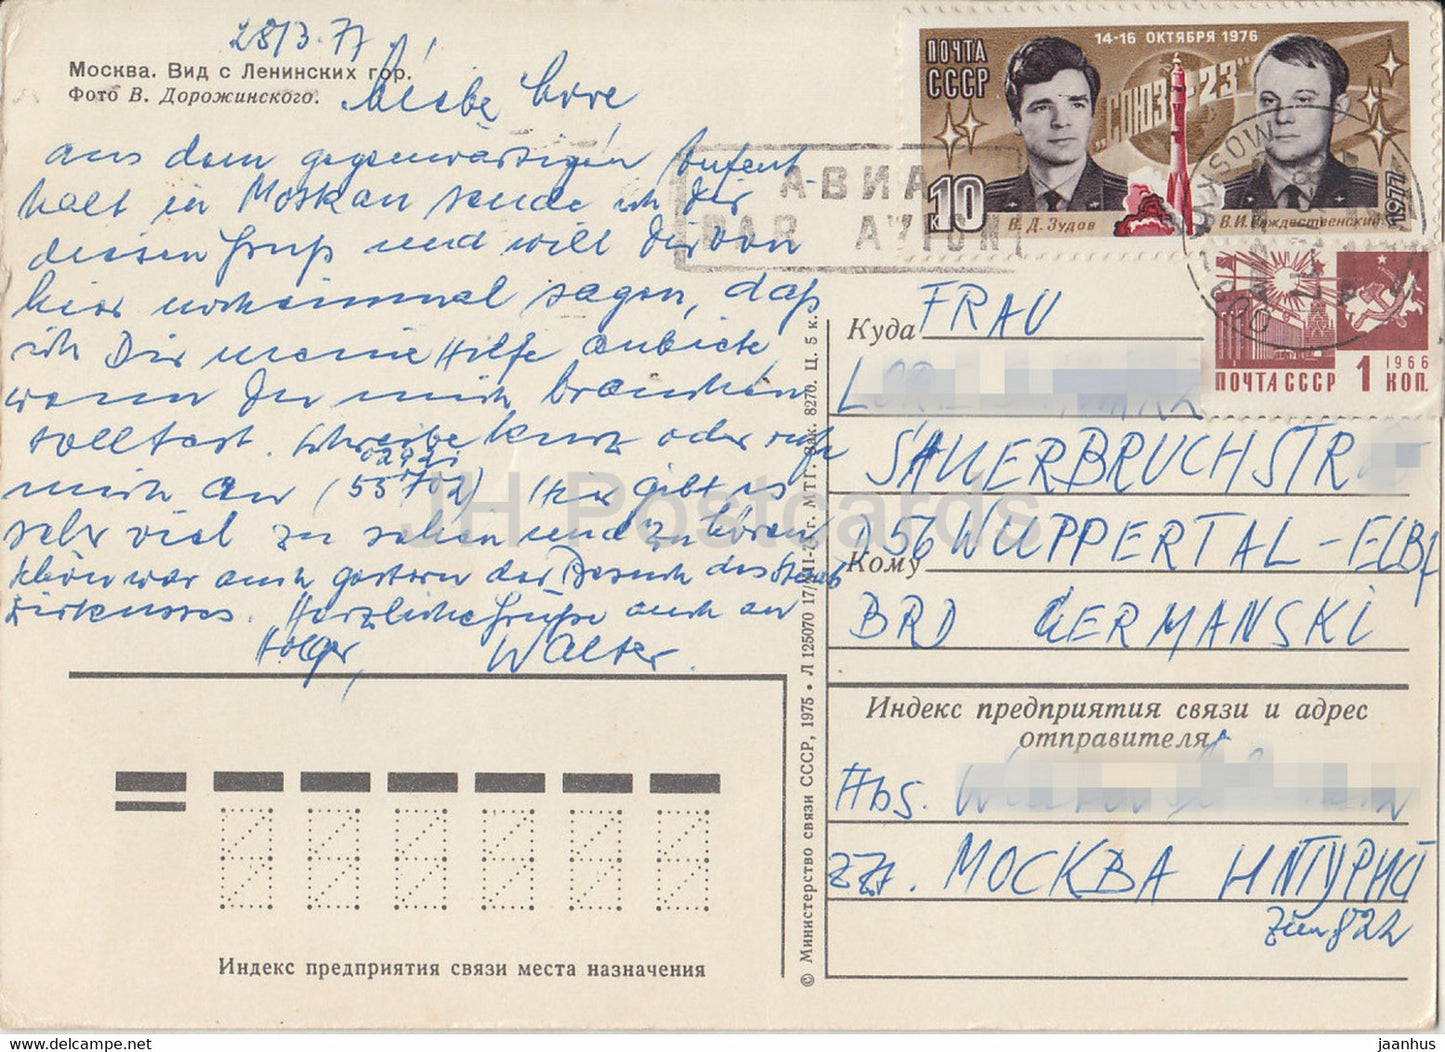 28/3.77
Москва. Вид с Ленинских гор.
Фото В. Дорожинского.
Liebe Lore,
aus dem gegenwärtigen Aufent-
halt in Moskau sende ich Dir
diesen Gruß und will Dir von
hier nocheinmal sagen, daß
ich Dir meine Hilfe anbiete,
wenn Du mich brauchen
solltest. Schreibe kurz oder rufe
mich an (55702). Hier gibt es
sehr viel zu sehen und zu hören
Schön war auch gestern der Besuch des Staats
zirkusses. Herzliche Grüße auch an
Holger, Walter.
ПОЧТА
СССР
14-16 ОКТЯБРЯ 1976
"СОЮЗ-23"
10 К
В. Д. Зудов
В.И. Рождественский
1977
АВИА
PAR AVION
MOSKVA
ПОЧТА СССР 1 КОП.
1966
Куда FRAU
SAUERBRUCHSTR
Кому 56 WUPPERTAL-ELBF
BRD GERMANSKI
Индекс предприятия связи и адрес
отправителя
Abs.
zZt. МОСКВА
822
Индекс предприятия связи места назначения
© Министерство связи СССР, 1975 • Л 125070 17/ г. МТГ. Зак. 8270. Ц. 5 к.
JH Postcards
www.delcampe.net
jaanhus